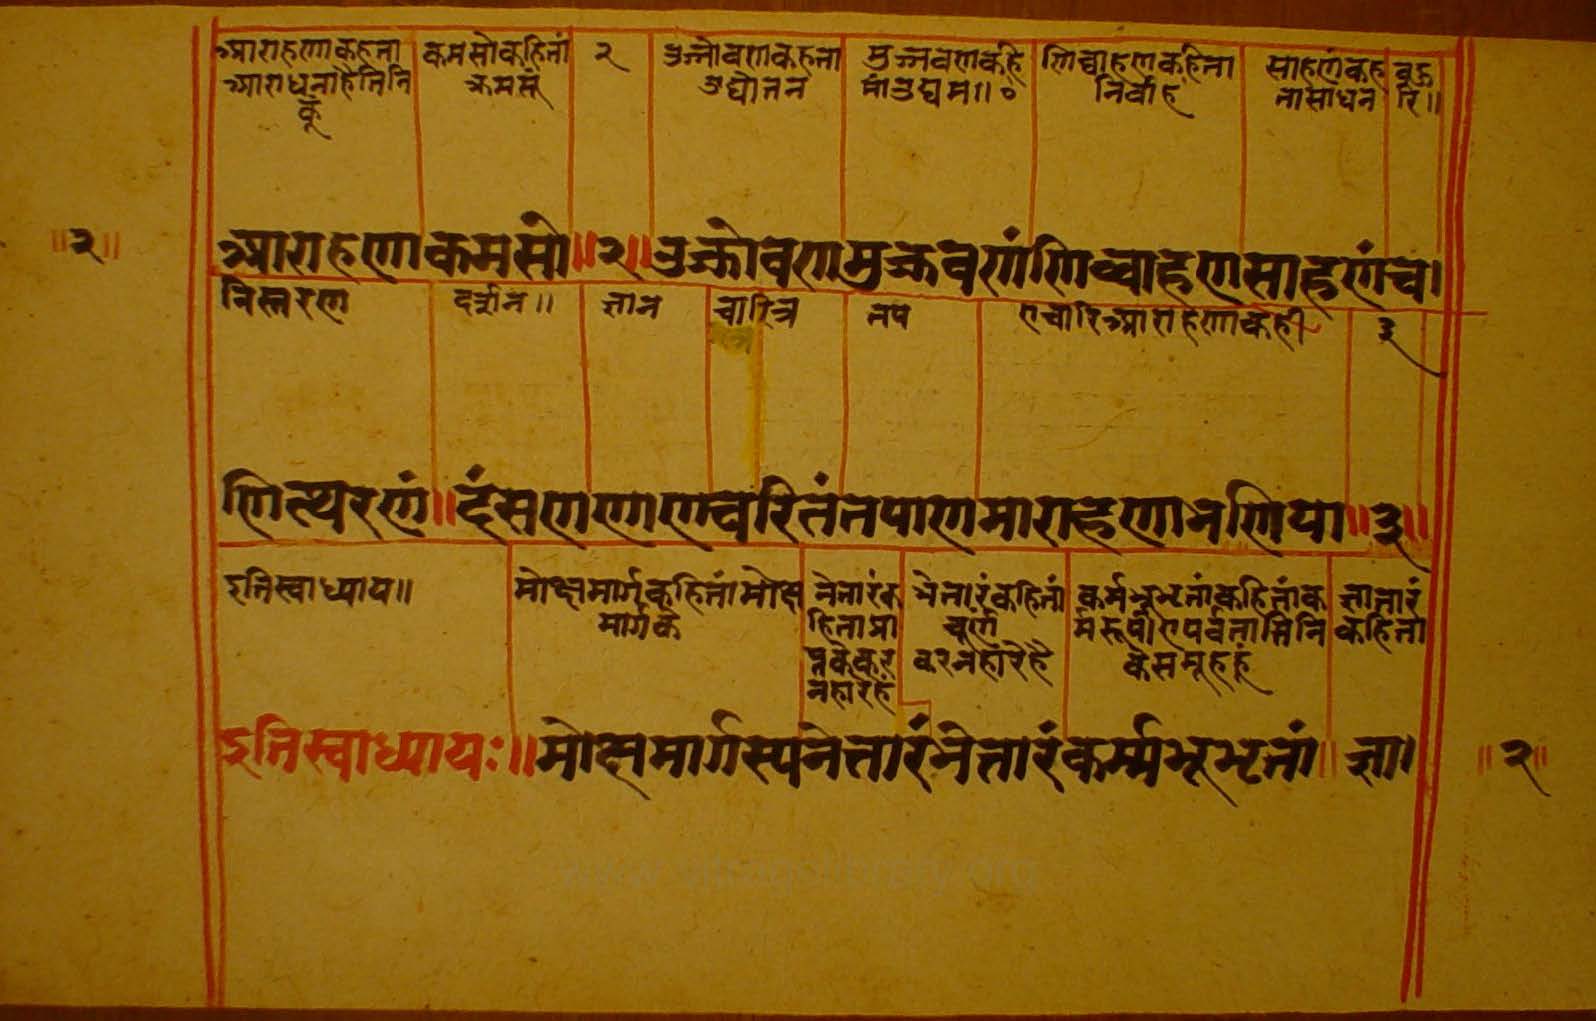 आराहणाकहता कमसोकहितां २ उज्जोवणकहता मुज्जवणकही णिव्वाहणकहिता साहणंकह बहु
आराधनाहैतिनि क्रमसूं उद्योतन मांउद्यम॥० निर्वाह तासाधन रि॥
कूँ
॥२॥ आराहणाकमसो॥२॥उज्जोवणमुज्जवणंणिव्वाहणसाहणंच।
निस्तरण दर्शन॥ ज्ञान चारित्र तप एचारिआराहणाकही ३
णित्थरणं॥दंसणणाणचरितंतवाणमाराहणाभणिया॥३॥
इतिस्वाध्याय॥ मोक्षमार्गकहितांमोक्ष नेतारंक भेतारंकहितां कर्मभूभृतांकहितांक ज्ञातारं
मार्गके हिताप्रा चूर्ण र्मरूपीएपर्वततिनि कहिता
प्तकेकर करनेहारेहै केसमूहहूं
नेहारेहैं
इतिस्वाध्यायः॥मोक्षमार्गस्यनेत्तारंभेतारंकर्म्मभूभृतां॥ज्ञा। ॥२॥